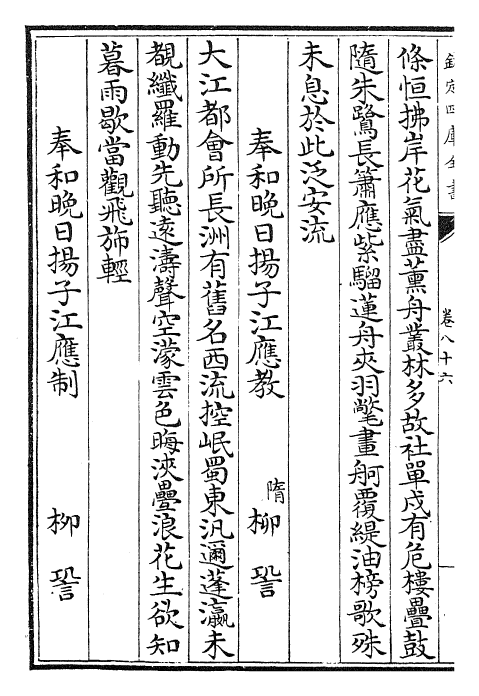 欽定四庫全書
卷八十六
條恒拂岸花氣盡薰舟叢林多故社單戍有危樓疊鼓
隨朱鷺長簫應紫騮蓮舟夾羽氅畫舸覆緹油榜歌殊
未息於此泛安流
奉和晚日揚子江應教 隋 柳䛒
大江都會所長洲有舊名西流控岷蜀東汎邇蓬瀛未
覩纖羅動先聽遠濤聲空濛雲色晦浹疊浪花生欲知
暮雨歇當觀飛斾輕
奉和晚日揚子江應制 柳䛒